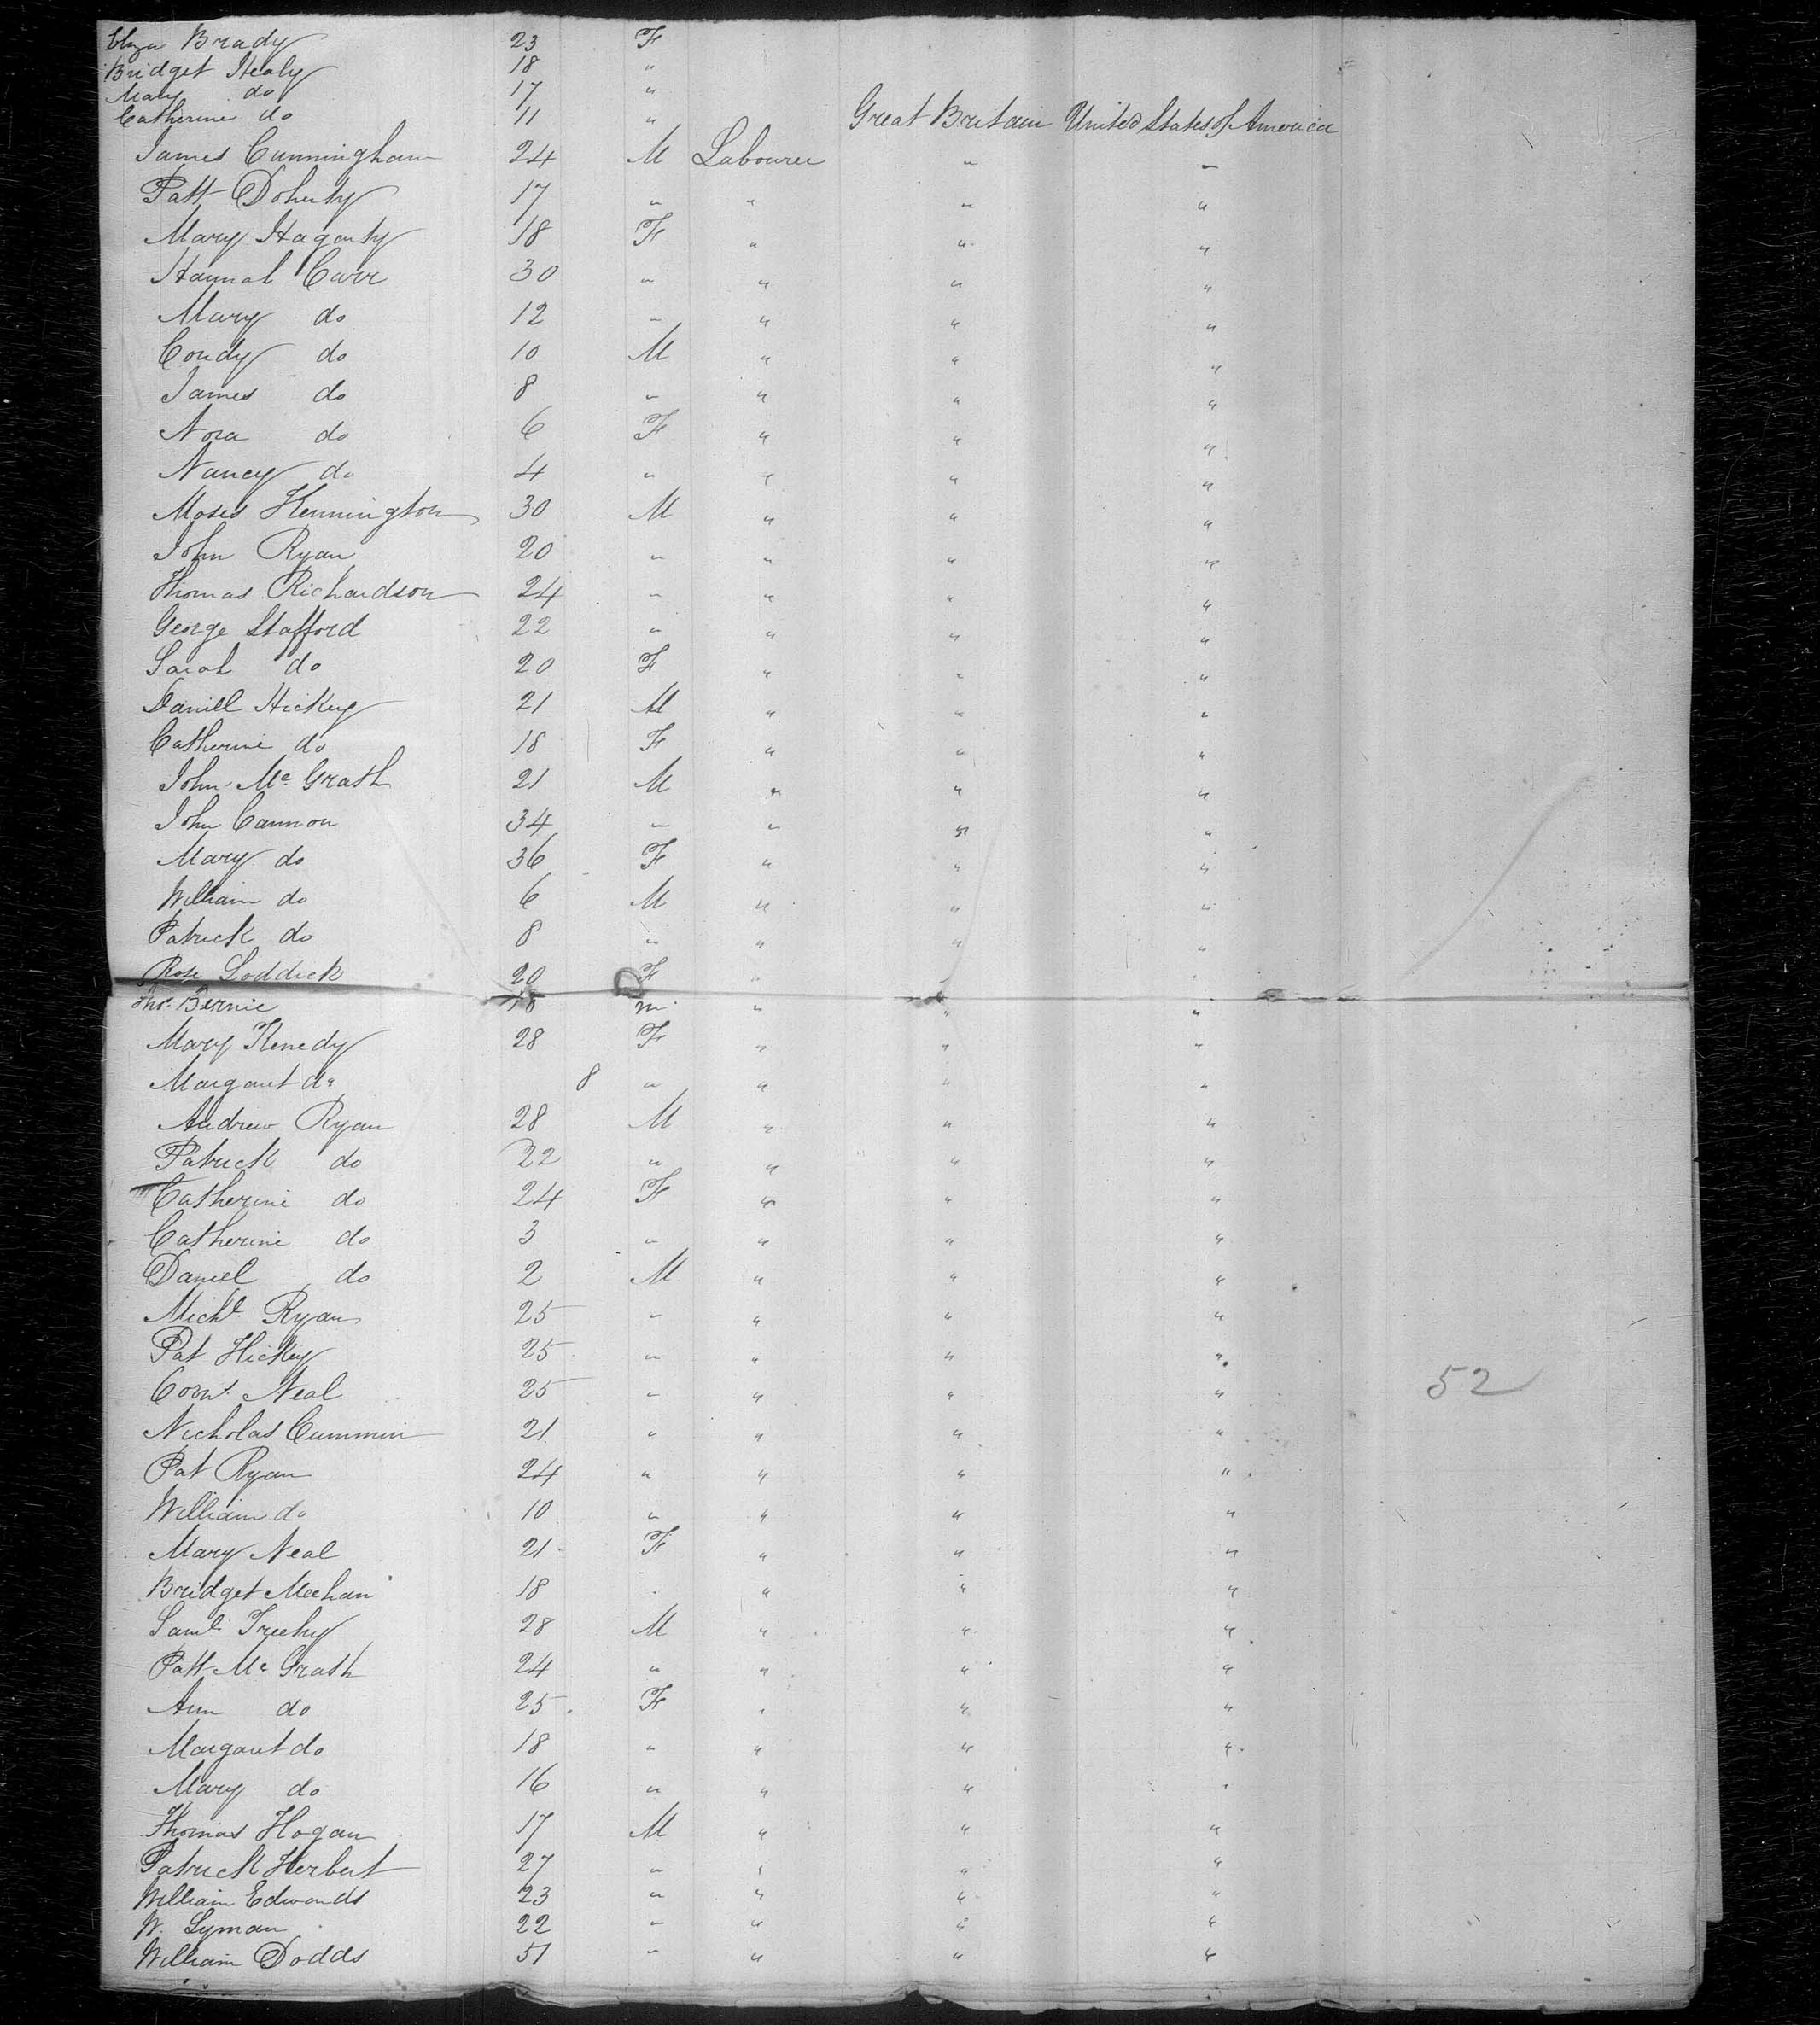 Eliza Brady 23 F
Bridget Healy 18 "
Mary do 17 "
Catherine do 11 " Great Britain United States of America
James Cunningham 24 M Labourer " "
Patt Doherty 17 " " " "
Mary Hagerty 18 F " " "
Hannah Carr 30 " " " "
Mary do 12 " " " "
Condy do 10 M " " "
James do 8 " " " "
Nora do 6 F " " "
Nancy do 4 " " " "
Moses Kennington 30 M " " "
John Ryan 20 " " " "
Thomas Richardson 24 " " " "
George Stafford 22 " " " "
Sarah do 20 F " " "
Daniel Hickey 21 M " " "
Catherine do 18 F " " "
John McGrath 21 M " " "
John Cannon 34 " " " "
Mary do 36 F " " "
William do 6 M " " "
Patrick do 8 " " " "
Rose Loddick 20 F " " "
Thos. Bernie 18 M " " "
Mary Kenedy 28 F " " "
Margaret do 8 " " " "
Andrew Ryan 28 M " " "
Patrick do 22 " " " "
Catherine do 24 F " " "
Catherine do 3 " " " "
Daniel do 2 M " " "
Michl Ryan 25 " " " "
Pat Hickey 25 " " " "
Corns. Neal 25 " " " " 52
Nicholas Cummin 21 " " " "
Pat Ryan 24 " " " "
William do 10 " " " "
Mary Neal 21 F " " "
Bridget Meehan 18 " " " "
Saml. Treehy 28 M " " "
Patt McGrath 24 " " " "
Ann do 25 F " " "
Margaret do 18 " " " "
Mary do 16 " " " "
Thomas Hogan 17 M " " "
Patrick Herbert 27 " " " "
William Edwards 23 " " " "
W. Lyman 22 " " " "
William Dodds 51 " " " "